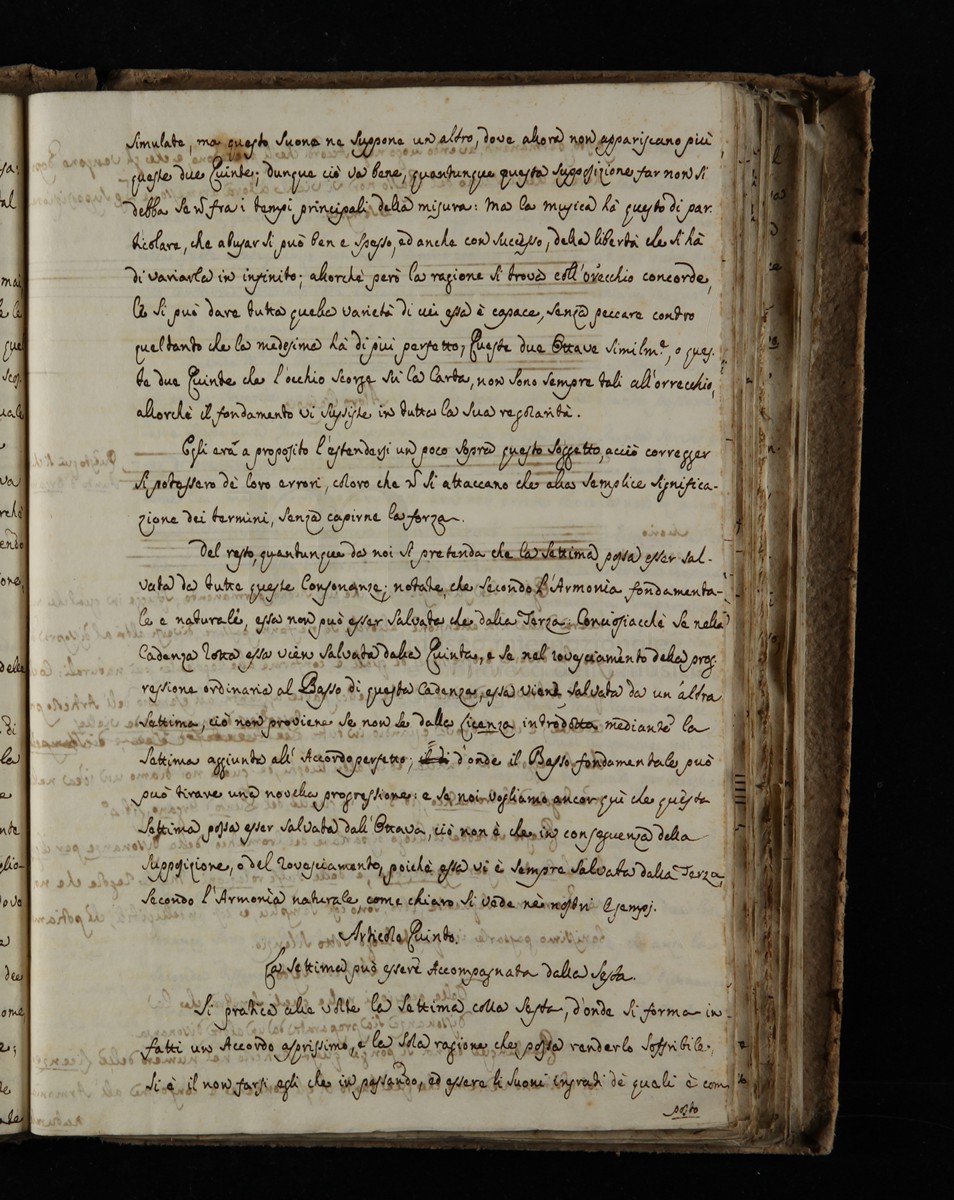 simulate, ma questo suono ne suppone un altro, dove allora non appariscano più
queste due Quinte; dunque ciò va bene, quantunque questa supposizione far non si
debba se ñ fra i tempi principali della misura: Ma la musica hà questo di par-
ticolare, che abusar si può ben e spesso, ed anche con successo, della libertà che si hà
di variarla in infinito; allorchè però la ragione si trova coll'orecchio concorde,
le si può dare tutta quella varietà di cui essa è capace, senza peccare contro
quel tanto che la medesima hà di più perfetto; Queste due Ottave similm.e, o ques-
te due Quinte che l'occhio scorge sù la Carta, non sono sempre tali all'orrecchio,
allorchè il fondamento vi sussiste in tutta la sua regolarità.
Egli era a proposito l'estendersi un poco sopra questo soggetto, acciò correger
si potessero de loro errori, coloro che ñ si attaccano che alla semplice significa-
zione dei termini, senza capirne la forza.
Del resto, quantunque da noi si pretenda che la settima possa esser sal-
vata da tutte queste Consonanze; notate, che secondo l'Armonia fondamenta-
le e naturale, essa non può esser salvata che dalla Terza: Conciosiacchè se nella
Cadenza Rotta essa vien salvata dalla Quinta, e se nel rovesciamento della prog-
ressione ordinaria al Basso di questa Cadenza, essa viene salvata da un'altra
settima, ciò non proviene se non se dalla licenza introdotta mediante la
settima aggiunta all'Accordo perfetto; d'onde il Basso fondamentale può
può tirare una novella progressione: e se noi vogliamo ancor quì che questa
settima possa esser salvata dall'Ottava, ciò non è, che in conseguenza della
supposizione, o del rovesciamento, poichè essa vi è sempre salvata dalla Terza
secondo l'Armonia naturale, come chiaro si vede ne nostri Esempj.
Articolo Quinto.
La settima può essere Accompagnata dalla Sesta.
Si pratica alle volte la settima colla sesta, d'onde si forma in-
fatti un Accordo asprissimo, e la sola ragione che possa renderlo soffribile,
si è il non farsi egli che in passando, ed essere li suoni ingrati de quali è com-
posto